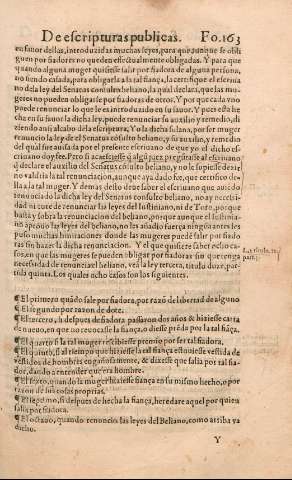 De escripturas publicas. Fo. 163
en fauor dellas, introduzidas muchas leyes, para que aunque se obli
guen por fiadores no queden effectualmente obligadas. Y para que
quando alguna muger quisiesse salir por fiadora de alguna persona,
no siendo casada, para obligarla a la tal fiança, la certifique el escriua
no dela ley del Senatus consulto beliano, la qual declara, que las mu
geres no pueden obligarse por fiadoras de otros. Y por que cada vno
puede renunciar lo que le es introduzido en su fauor. Y pues esta he
cha en su fauor la dicha ley, puede renunciar su auxilio y remedio, di
ziendo assi al cabo dela escriptura, Yo la dicha fulana, por ser muger
renuncio la ley de el Senatus cósulto beliano, y su auxilio, y remedio
del qual fue auisada por el presente escriuano de que yo el dicho es
criuano doy fee. Pero si acaesciesse
q declare el auxilio del Senatus cósulto beliano, y no le supiesse dezir
no valdria la tal renunciacion, aunque aya dado fe, que certifico de
lla a la tal muger. Y demas desto deue saber el escriuano que auiédo
renunciado la dicha ley del Senatus consulto beliano, no ay necessi-
dad ni cure de renunciar las leyes del Iustiniano, ni de Toro, porque
basta y sobra la renunciacion del beliano, por que aunque el Iustinia-
no aprouo las leyes del beliano, no les añadio fuerça ninguna antes les
puso muchas limitaciones donde las mugeres puedé salir por fiado
ras sin hazer la dicha renunciacion. Y el que quisiere saber ocho ca-
sos, en que las mugeres se pueden obligar por fiadoras sin que tenga
necessidad de renunciar el beliano, vea la ley tercera, titulo doze, par-
tida quinta. Los quales ocho casos son los siguientes.
parti.5
¶ El primero quádo sale por fiadora, por razó de libertad de alguno
¶ El segundo por razon de dote.
¶ El tercero, si despues de fiadora passaron dos años & hiziesse carta
de nueuo, en que no reuocasse la fiança, o diesse préda por la tal fiáça.
¶ El quarto si la tal muger rescibiesse precio por ser tal fiadora.
¶ El quinto, si al tiempo que hiziesse la tal fiança estuuiesse vestida de
vestidos de hombres engañosamente, & dixesse que salia por tal fia-
dor, dando a entender que era hombre.
¶ El sexto, quando la muger hiziesse fiança en su mismo hecho, o por
razon de sus cosas proprias.
¶ El septimo, si despues de hecha la fiança, heredare aquel por quien
salia por fiadora.
¶ El octauo, quando renuncio las leyes del Beliano, como arriba ya
dicho.
Y